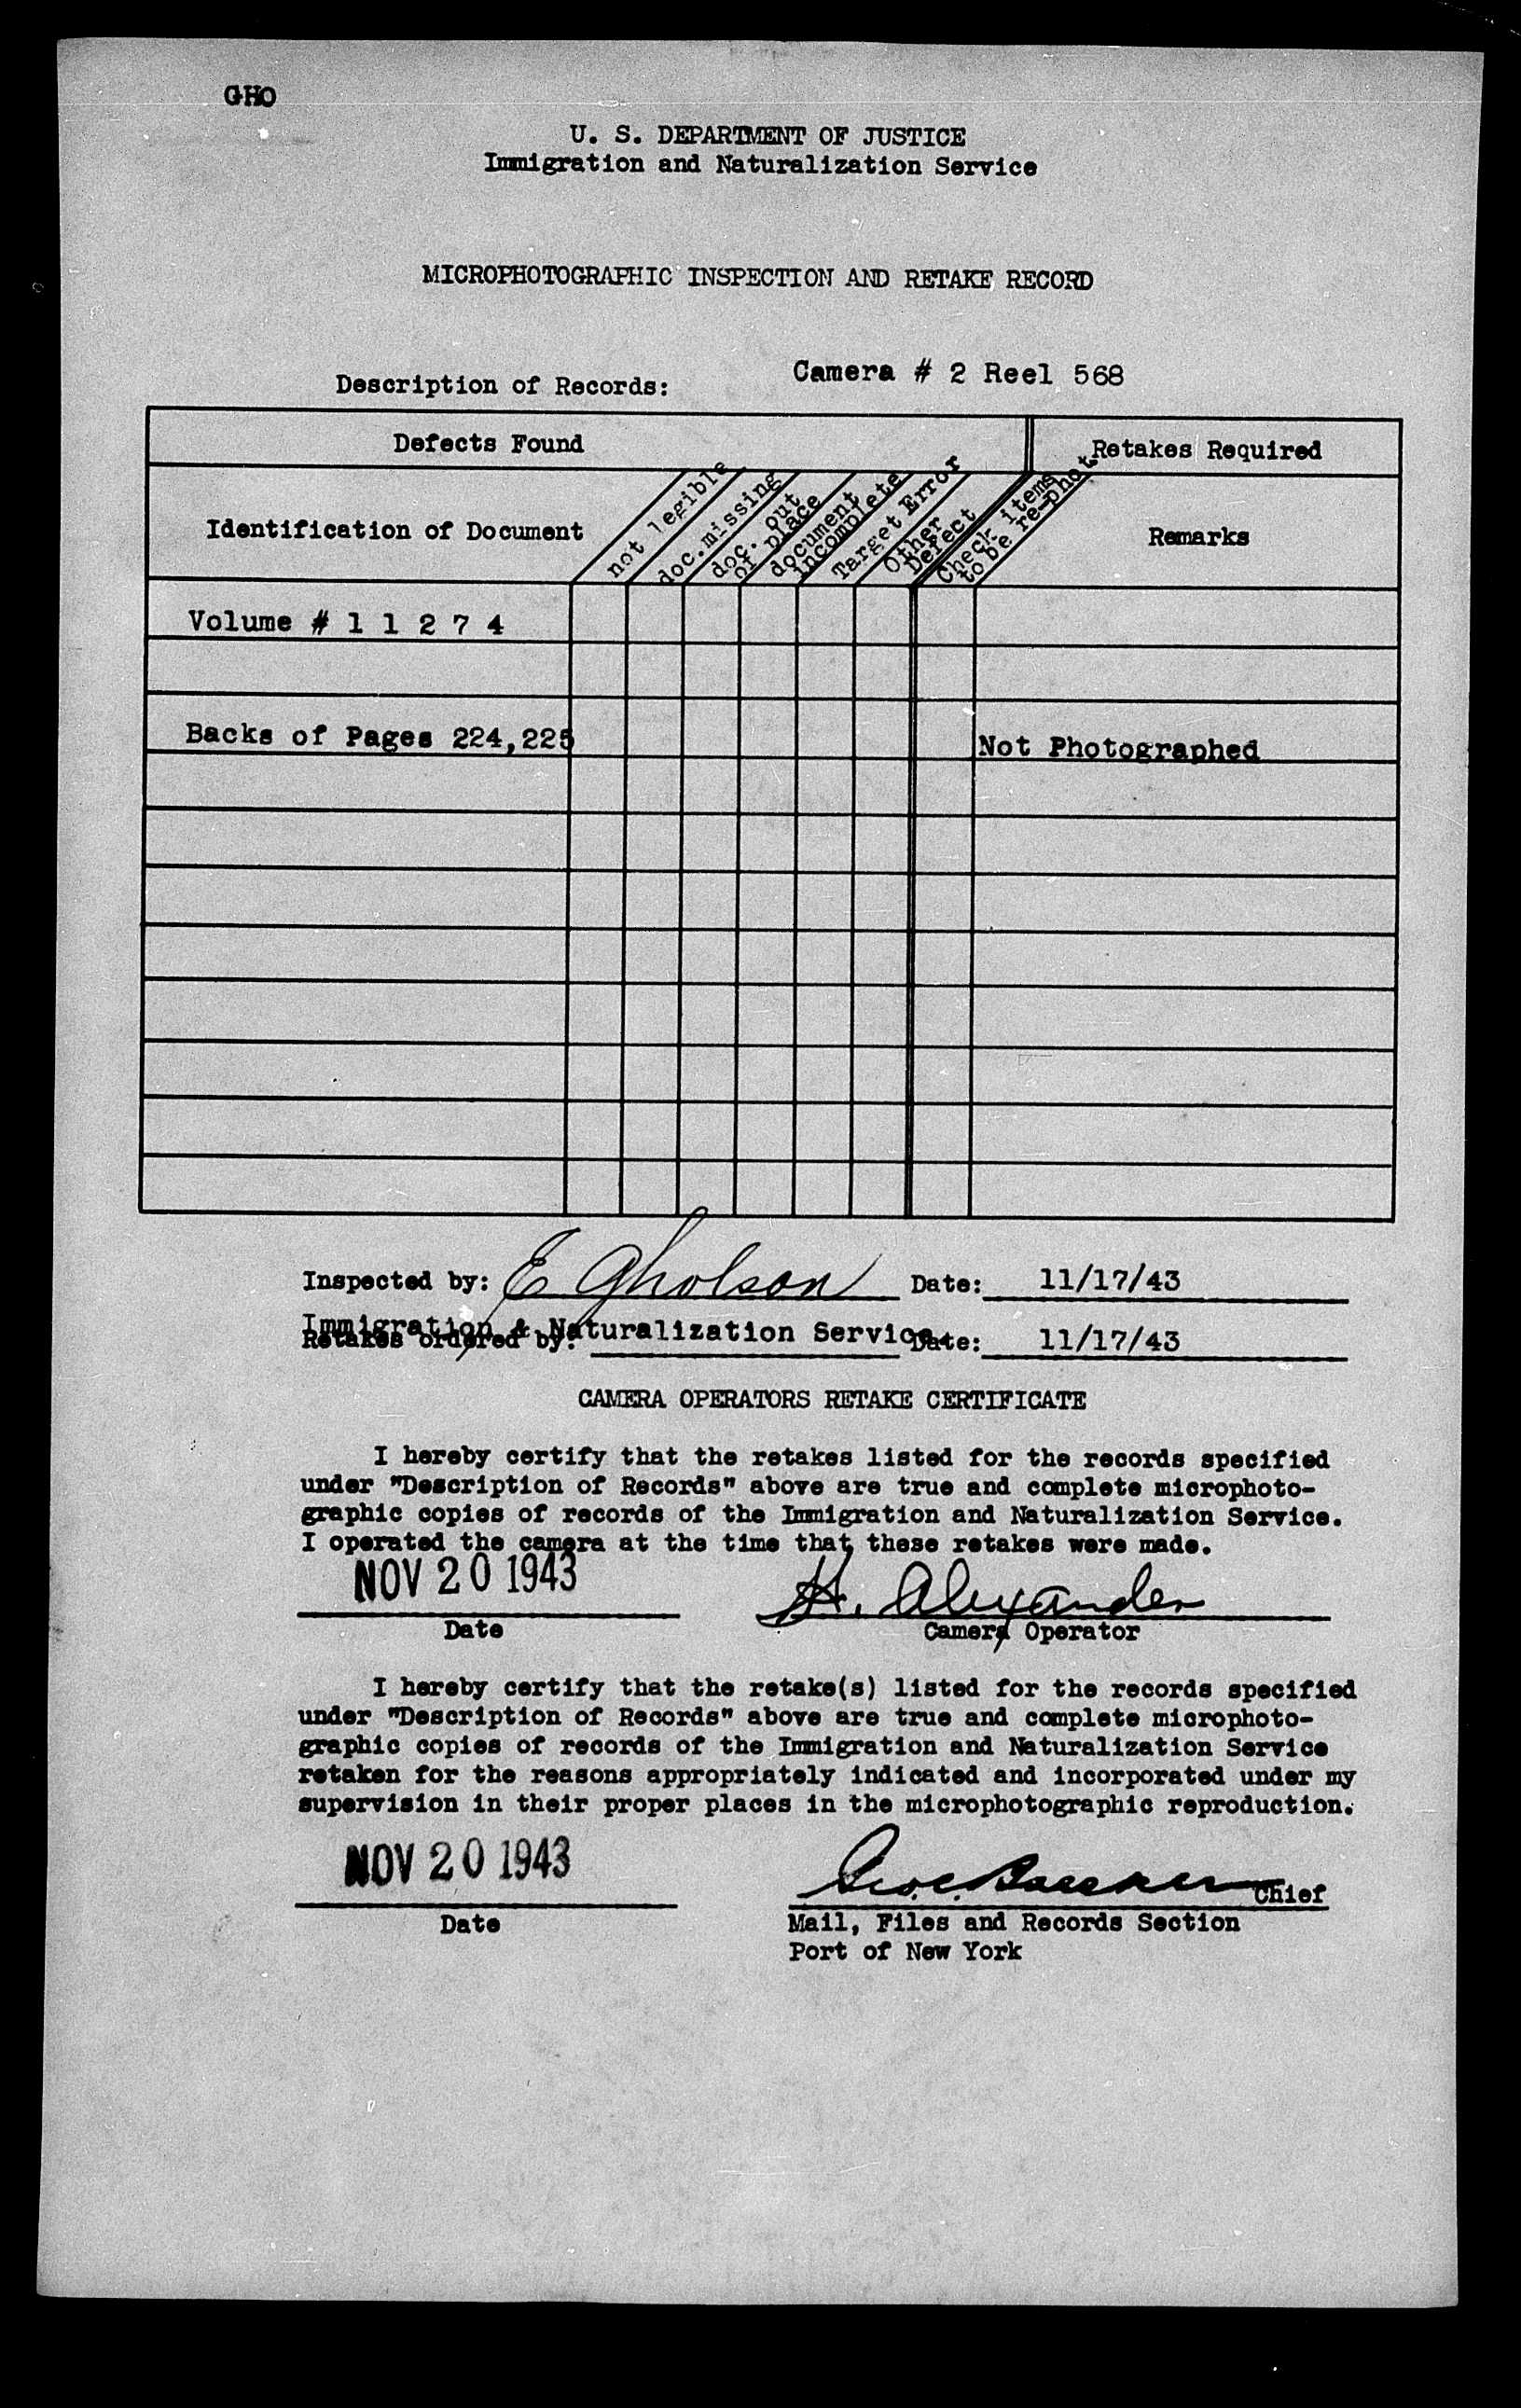 GHO
U. S. DEPARTMENT OF JUSTICE
Immigration and Naturalization Service
MICROPHOTOGRAPHIC INSPECTION AND RETAKE RECORD
Description of Records: Camera # 2 Reel 568
Defects Found
Retakes Required
Identification of Document
not legible
doc.missing
doc. out
of place
document
incomplete
Target Error
Other
Defect
Check items
to be re-phot
Remarks
Volume # 1 1 2 7 4
Backs of Pages 224,225
Not Photographed
Inspected by: E Gholson Date: 11/17/43
Immigration & Naturalization Service.
Retakes ordered by: Date: 11/17/43
CAMERA OPERATORS RETAKE CERTIFICATE
I hereby certify that the retakes listed for the records specified
under "Description of Records" above are true and complete microphoto-
graphic copies of records of the Immigration and Naturalization Service.
I operated the camera at the time that these retakes were made.
NOV 20 1943 H. Alexander
Date Camera Operator
I hereby certify that the retake(s) listed for the records specified
under "Description of Records" above are true and complete microphoto-
graphic copies of records of the Immigration and Naturalization Service
retaken for the reasons appropriately indicated and incorporated under my
supervision in their proper places in the microphotographic reproduction.
NOV 20 1943 Chief
Date Mail, Files and Records Section
Port of New York